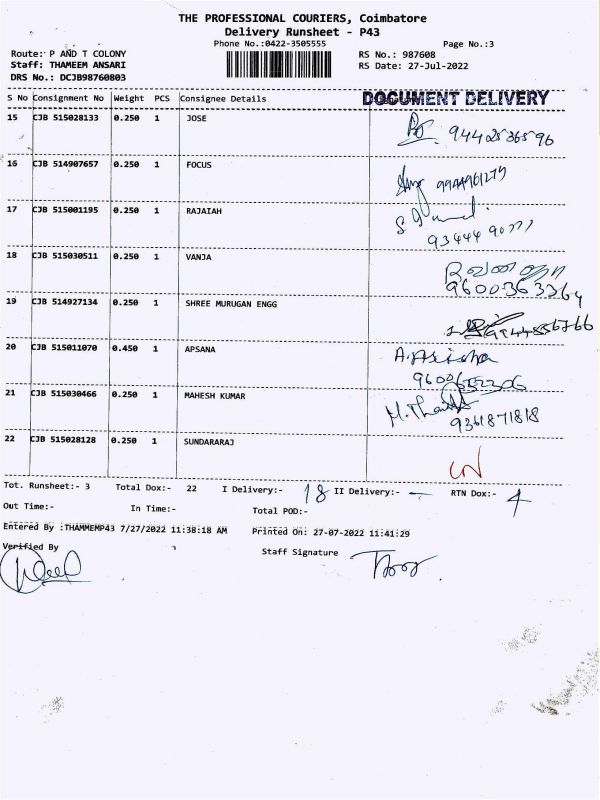 THE PROFESSIONAL COURIERS, Coimbatore
Delivery Runsheet - P43
Phone No.:0422-3505555
Page No.:3
Route: P AND T COLONY
RS No.: 987608
Staff: THAMEEM ANSARI
RS Date: 27-Jul-2022
DRS No.: DCJB98760803
S No Consignment No Weight PCS Consignee Details DOCUMENT DELIVERY
15 CJB 515028133 0.250 1 JOSE
16 CJB 514907657 0.250 1 FOCUS
17 CJB 515001195 0.250 1 RAJAIAH
93444 90777
18 CJB 515030511 0.250 1 VANJA
9600363364
19 CJB 514927134 0.250 1 SHREE MURUGAN ENGG
20 CJB 515011070 0.450 1 APSANA
A.Arisha
21 CJB 515030466 0.250 1 MAHESH KUMAR
9361871818
22 CJB 515028128 0.250 1 SUNDARARAJ
Tot. Runsheet:- 3 Total Dox:- 22 I Delivery:- 18 II Delivery:- — RTN Dox:- 4
Out Time:- In Time:- Total POD:-
Entered By :THAMMEMP43 7/27/2022 11:38:18 AM Printed On: 27-07-2022 11:41:29
Verified By
Staff Signature